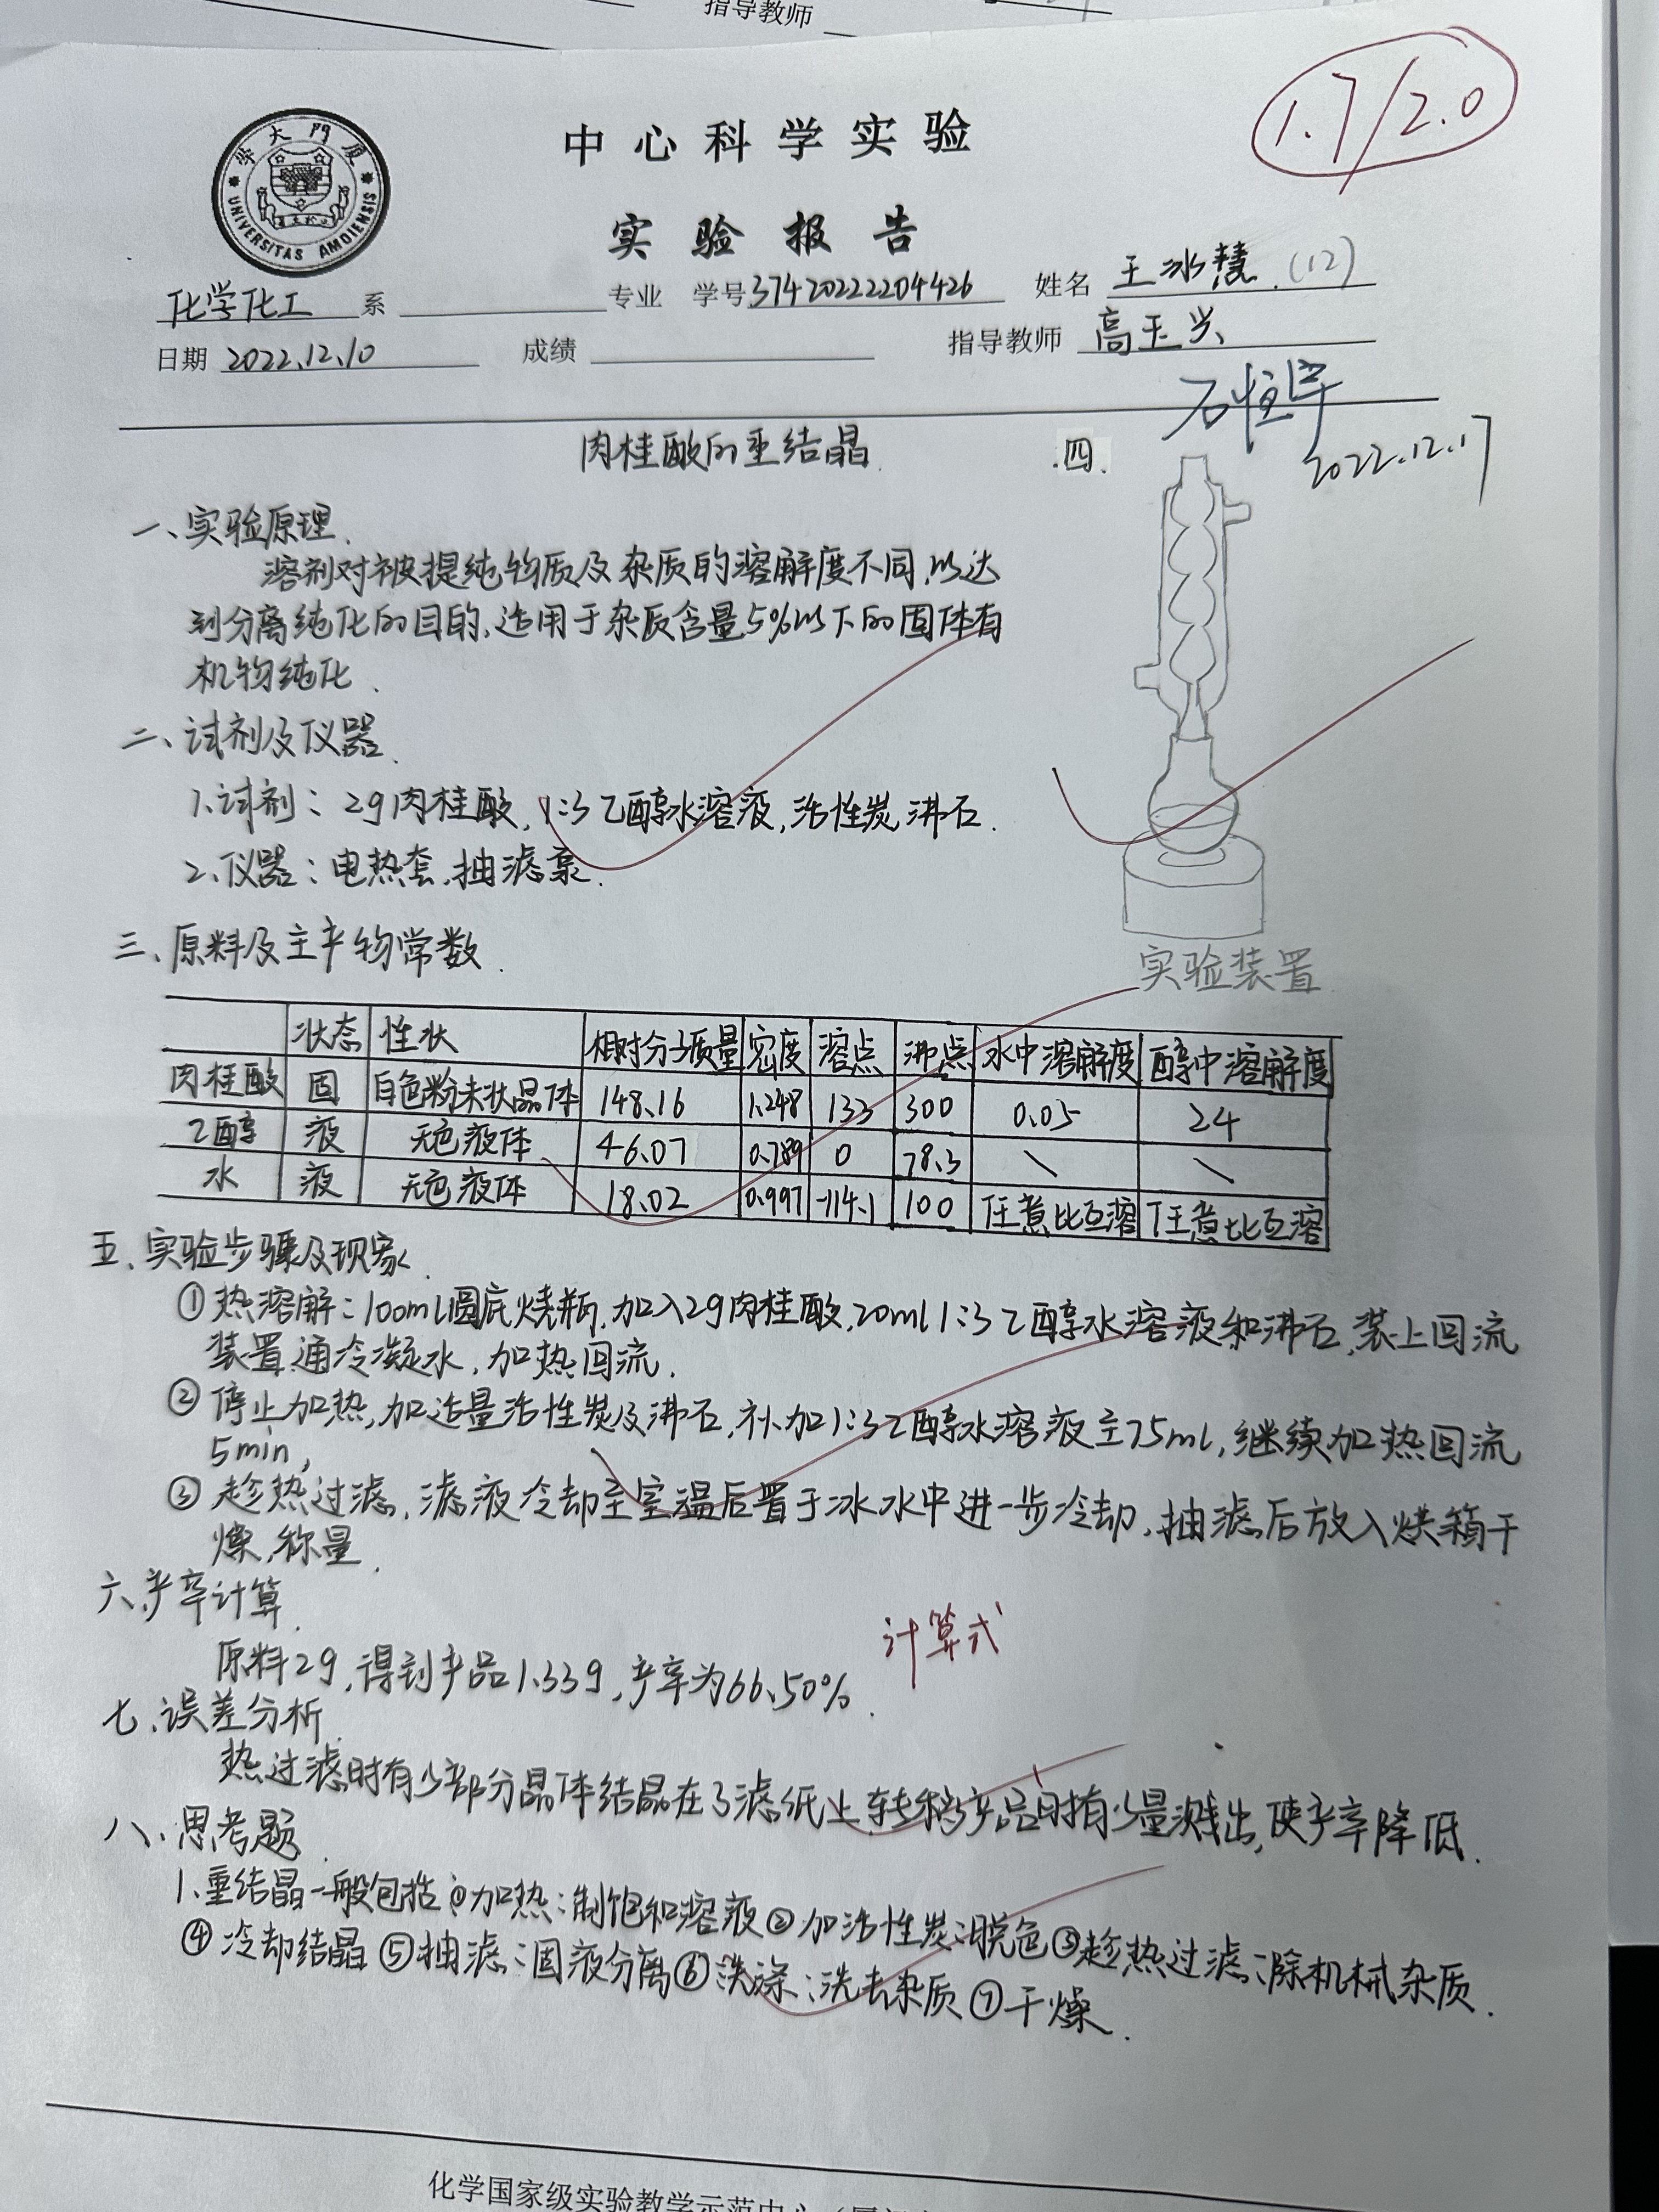 指导教师
1.7/2.0
厦门大学
UNIVERSITAS AMOIENSIS
中心科学实验
实验报告
化学化工 系 专业 学号 37420222204426 姓名 王冰慧 (12)
日期 2022.12.10 成绩 指导教师 高玉兴
2022.12.17
肉桂酸的重结晶
四.
一、实验原理.
溶剂对被提纯物质及杂质的溶解度不同,以达
到分离纯化的目的.适用于杂质含量5%以下的固体有
机物纯化.
二、试剂及仪器.
1.试剂:2g肉桂酸,1:3乙醇水溶液,活性炭,沸石.
2.仪器:电热套,抽滤泵.
三、原料及主产物常数.
实验装置
状态 性状 相对分子质量 密度 溶点 沸点 水中溶解度 醇中溶解度
肉桂酸 固 白色粉末状晶体 148.16 1.248 133 300 0.05 24
乙醇 液 无色液体 46.07 0.789 0 78.3 \ \
水 液 无色液体 18.02 0.997 -114.1 100 任意比互溶 任意比互溶
五.实验步骤及现象.
①热溶解:100ml圆底烧瓶,加入2g肉桂酸,20ml 1:3乙醇水溶液和沸石,装上回流
装置,通冷凝水,加热回流.
②停止加热,加适量活性炭及沸石,补加1:3乙醇水溶液至75ml,继续加热回流
5min,
③趁热过滤,滤液冷却至室温后置于冰水中进一步冷却,抽滤后放入烘箱干
燥,称量.
六.产率计算.
原料2g,得到产品1.33g,产率为66.50%.
计算式
七.误差分析.
热过滤时有少部分晶体结晶在了滤纸上,转移产品时有少量溅出,使产率降低.
八.思考题.
1.重结晶一般包括①加热:制饱和溶液②加活性炭:脱色③趁热过滤:除机械杂质.
④冷却结晶⑤抽滤:固液分离⑥洗涤:洗去杂质⑦干燥.
化学国家级实验教学示范中心